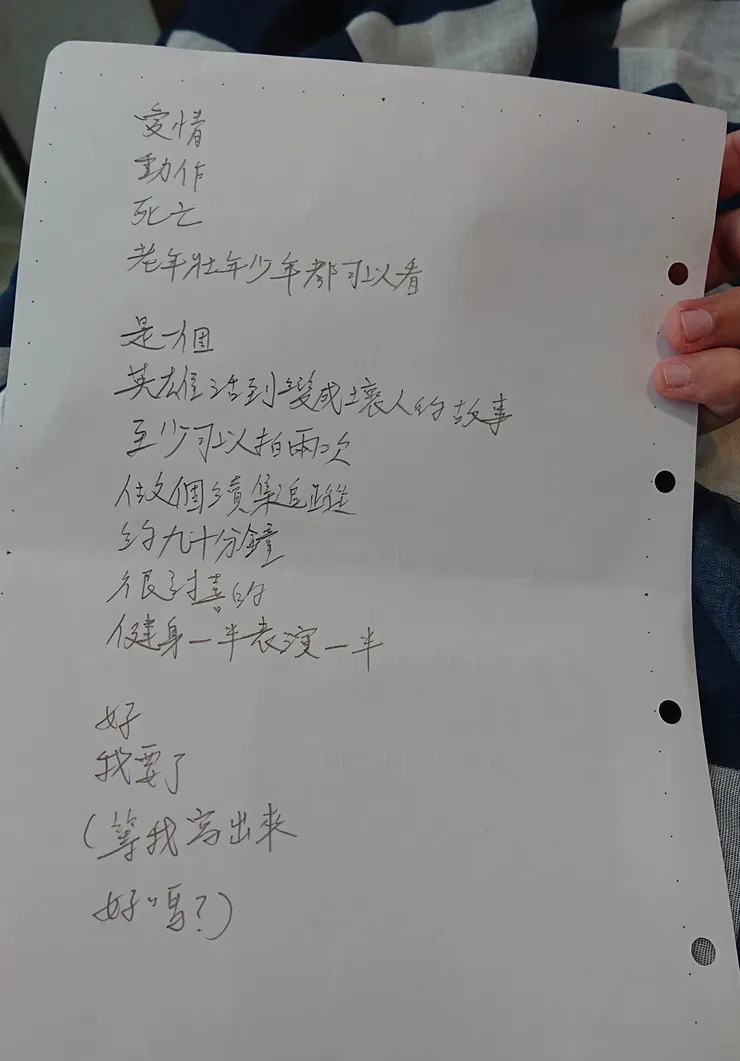 愛情
動作
死亡
老年壯年少年都可以看
是一個
英雄活到變成壞人的故事
至少可以拍兩次
做個續集追蹤
約九十分鐘
很討喜的
健身一半表演一半
好
我要了
(等我寫出來
好嗎?)